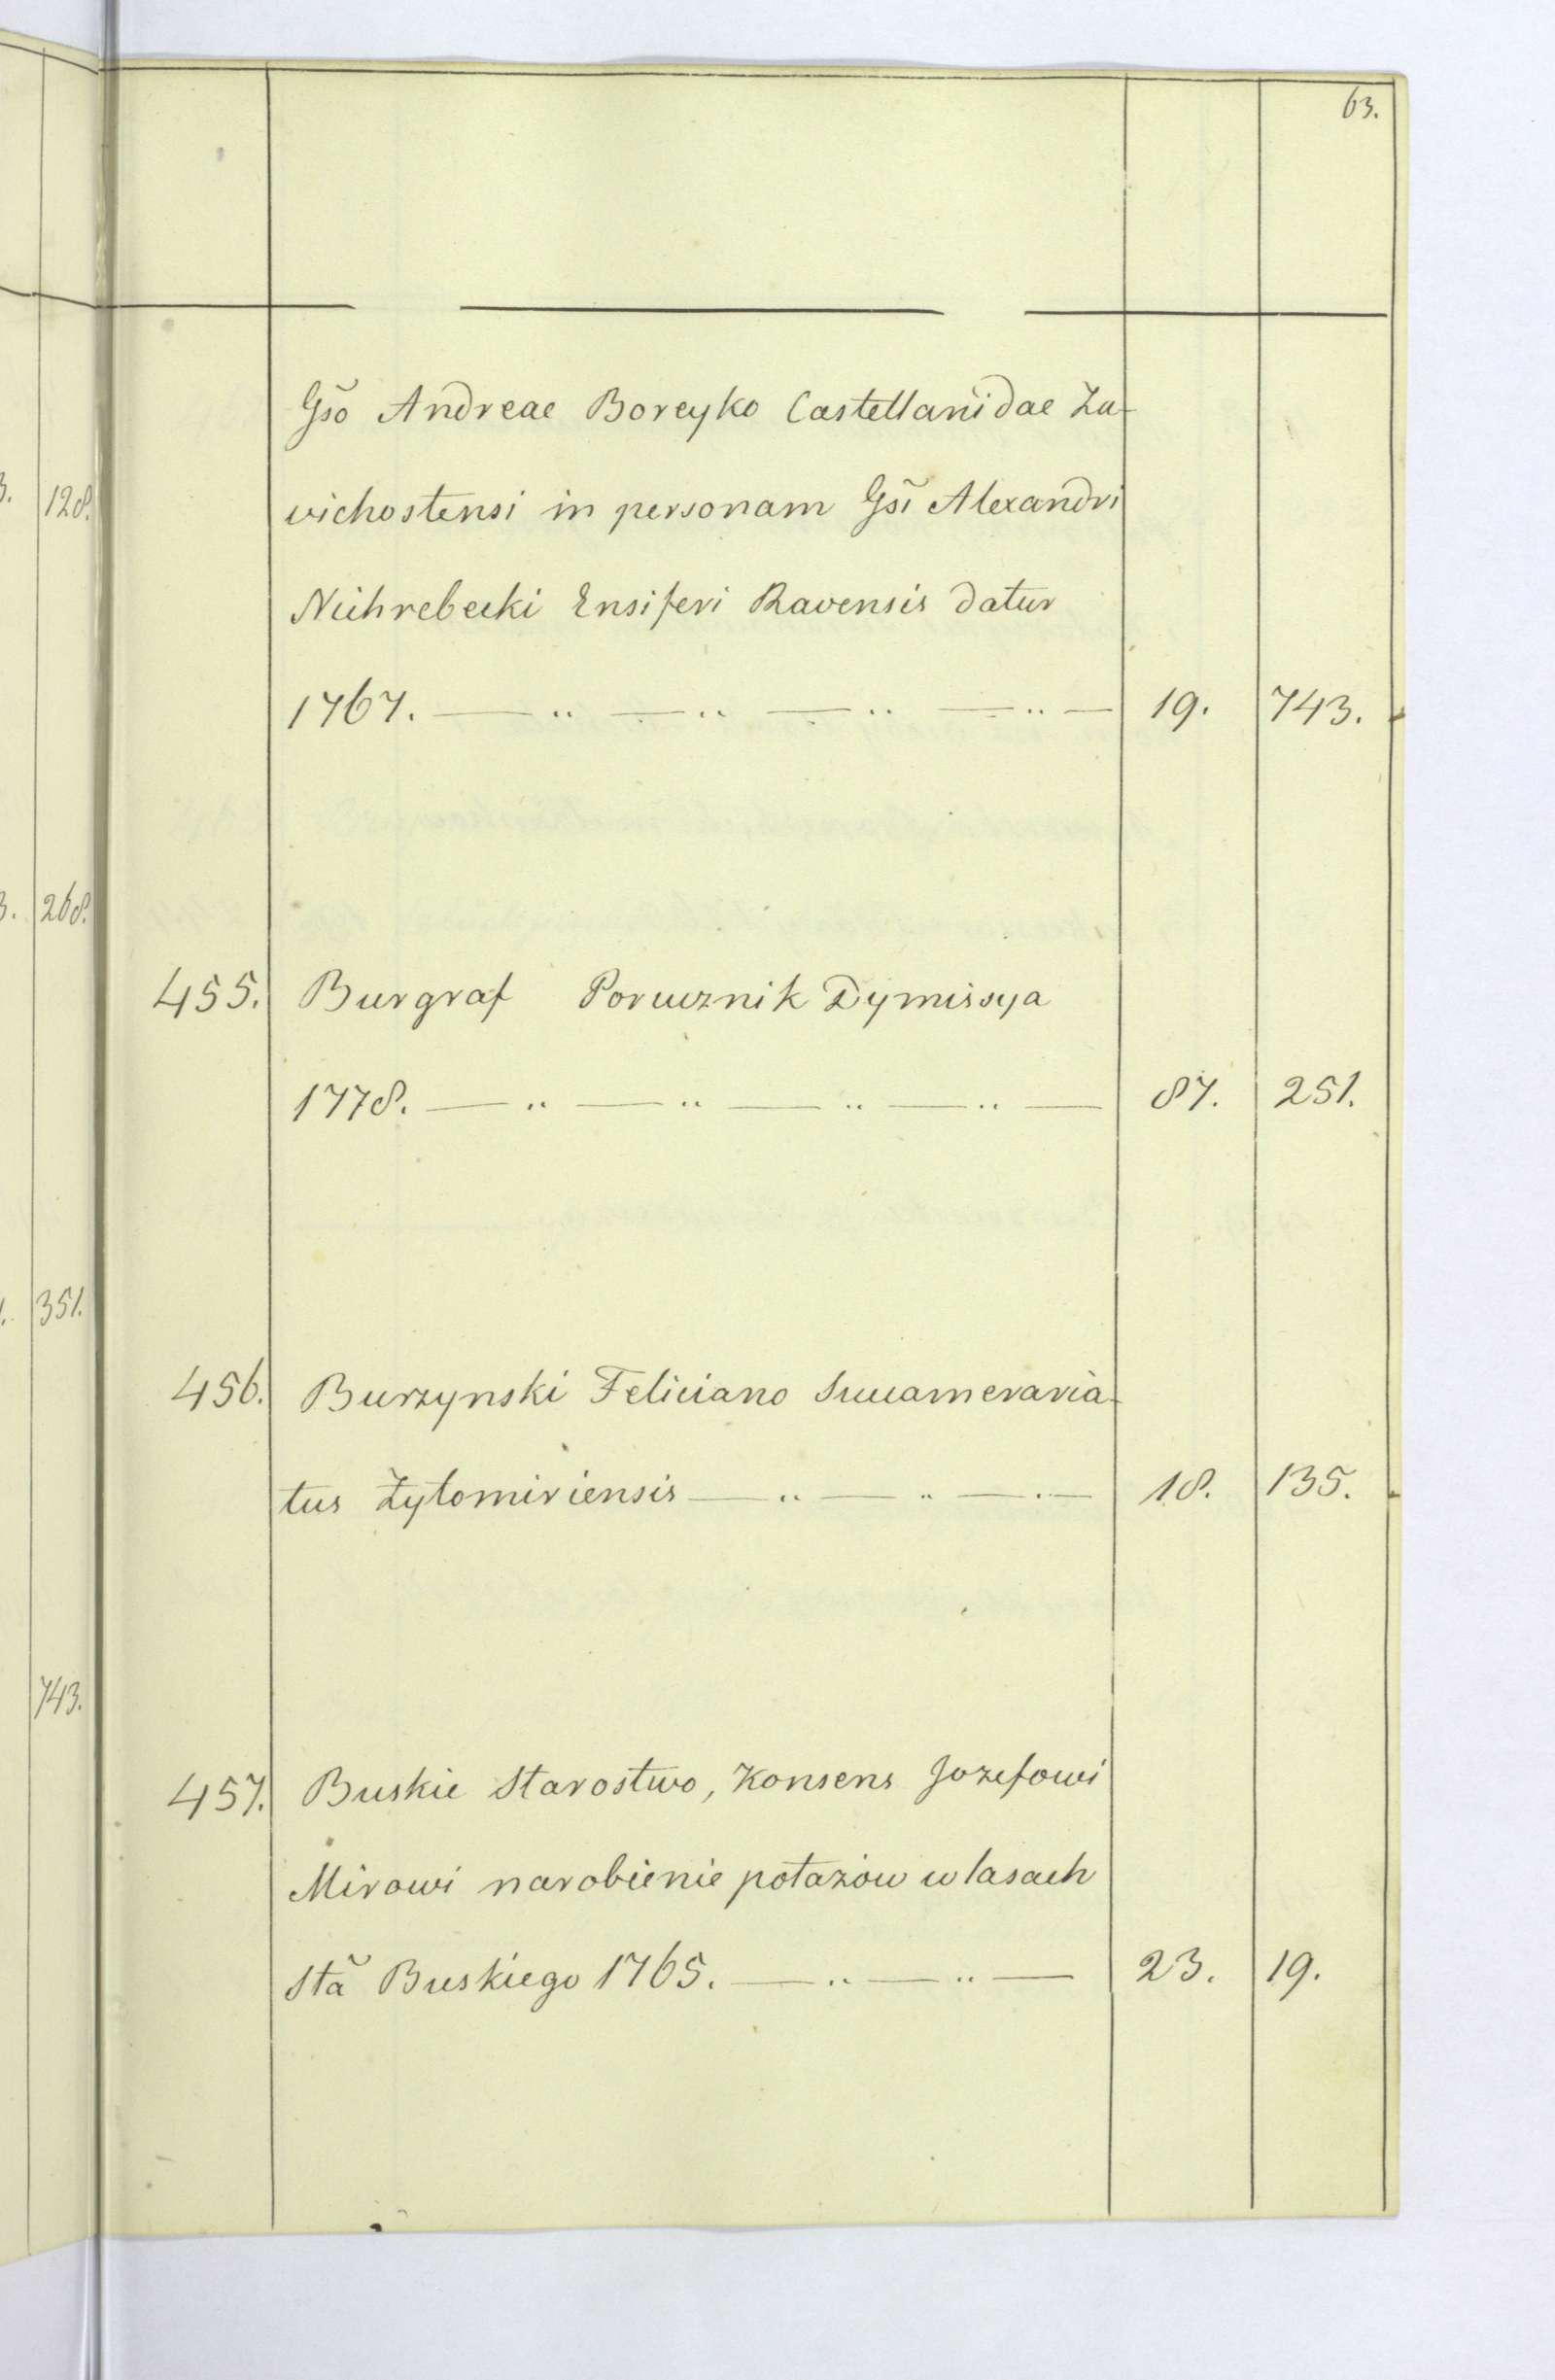 63.
Gso Andreae Boreyko Castellanidae Za-
wichostensi in personam Gsi Alexandri
Niihrebecki Ensiferi Ravensis datur
1767. — " — " — " — " — 19. 743.
455. Burgraf Porucznik Dymissya
1778. — " — " — " — " — 87. 251.
456. Burzynski Feliciano Succameraria-
tus Żytomiriensis — " — " — " — 18. 135.
457. Buskie Starostwo, Konsens Jozefowi
Mirowi narobienie potazów w lasach
Sta Buskiego 1765. — " — " — 23. 19.
128.
268.
351.
743.